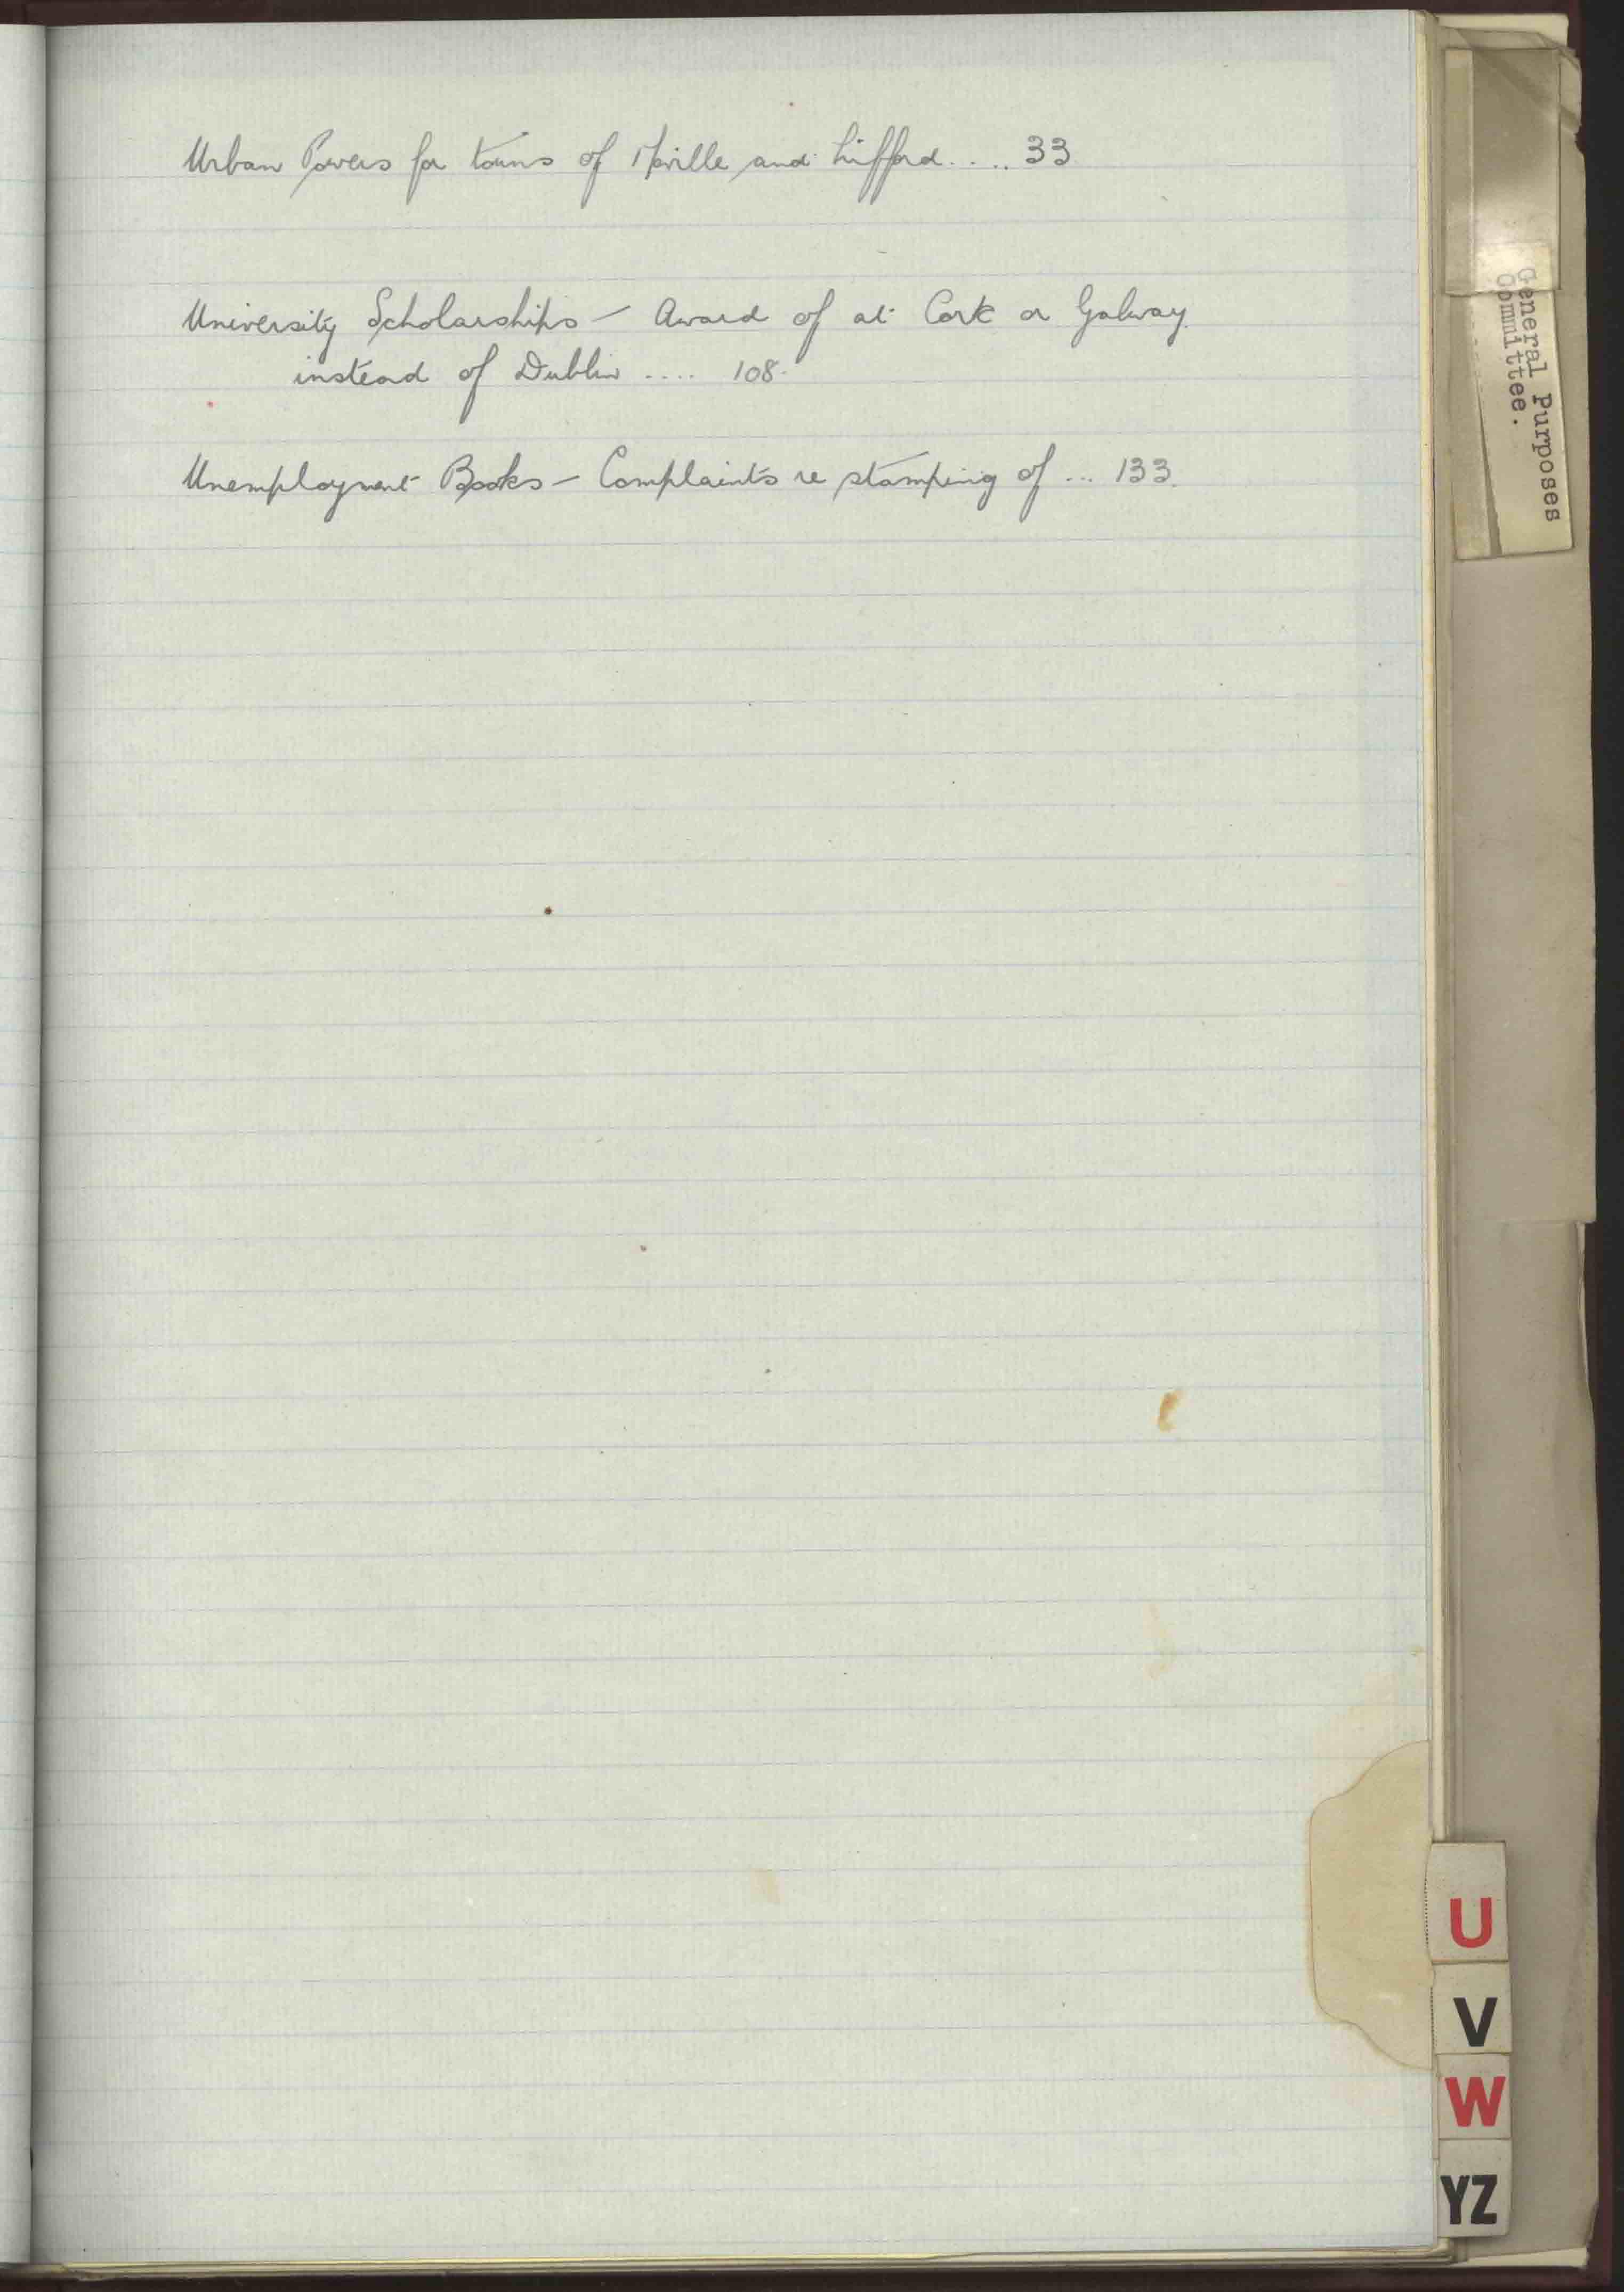 Urban Powers for towns of Moville and Lifford.... 33
University Scholarships - Award of at Cork or Galway
instead of Dublin .... 108.
Unemployment Books - Complaints re stamping of ... 133.
General Purposes
Committee.
U
V
W
YZ